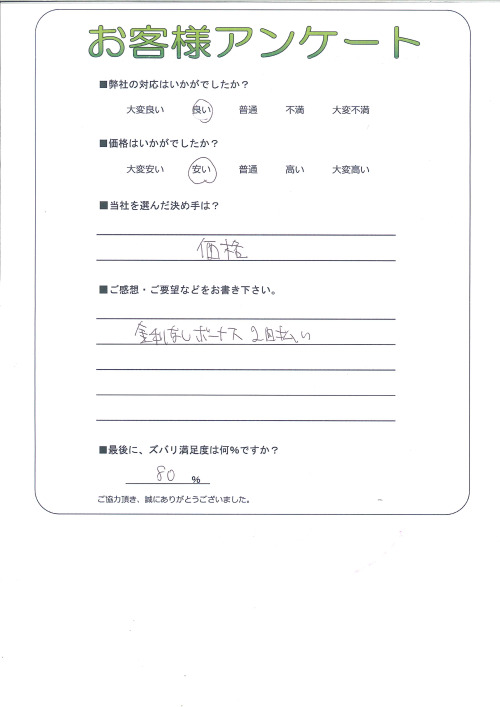 お客様アンケート
■弊社の対応はいかがでしたか？
大変良い 良い 普通 不満 大変不満
■価格はいかがでしたか？
大変安い 安い 普通 高い 大変高い
■当社を選んだ決め手は？
価格
■ご感想・ご要望などをお書き下さい。
金利なしボーナス2回払い
■最後に、ズバリ満足度は何%ですか？
80 %
ご協力頂き、誠にありがとうございました。